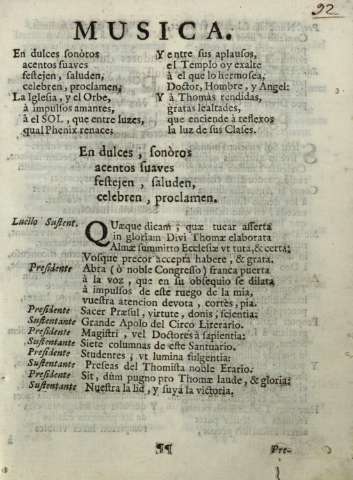 92
MUSICA.
En dulces sonòros
acentos suaves
festejen, saluden,
celebren, proclamen;
La Iglesia, y el Orbe,
à impulsos amantes,
à el SOL, que entre luzes,
qual Phenix renace;
Y entre sus aplausos,
el Templo oy exalte
à el que lo hermosea,
Doctor, Hombre, y Angel:
Y à Thomàs rendidas,
gratas lealtades,
que enciende à reflexos
la luz de sus Clases.
En dulces, sonòros
acentos suaves
festejen, saluden,
celebren, proclamen.
Lucilo Sustent. Quæque dicam; quæ tucar asserta
in gloriam Divi Thomæ elaborata
Almæ summitto Ecclesiæ vt tuta, & certa;
Vosque precor accepta habere, & grata.
Presidente Abra (ò noble Congresso) franca puerta
à la voz, que en su obsequio se dilata
à impulsos de este ruego de la mia,
vuestra atencion devota, cortès, pia.
Presidente Sacer Præsul, virtute, donis, scientia;
Sustentante Grande Apolo del Circo Literario.
Presidente Magistri, vel Doctores à sapientia;
Sustentante Siete columnas de este Santuario.
Presidente Studentes; vt lumina fulgentia;
Sustentante Preseas del Thomista noble Erario.
Presidente Sit, dùm pugno pro Thomæ laude, & gloria;
Sustentante Nuestra la lid, y suya la victoria.
¶¶ Pre-